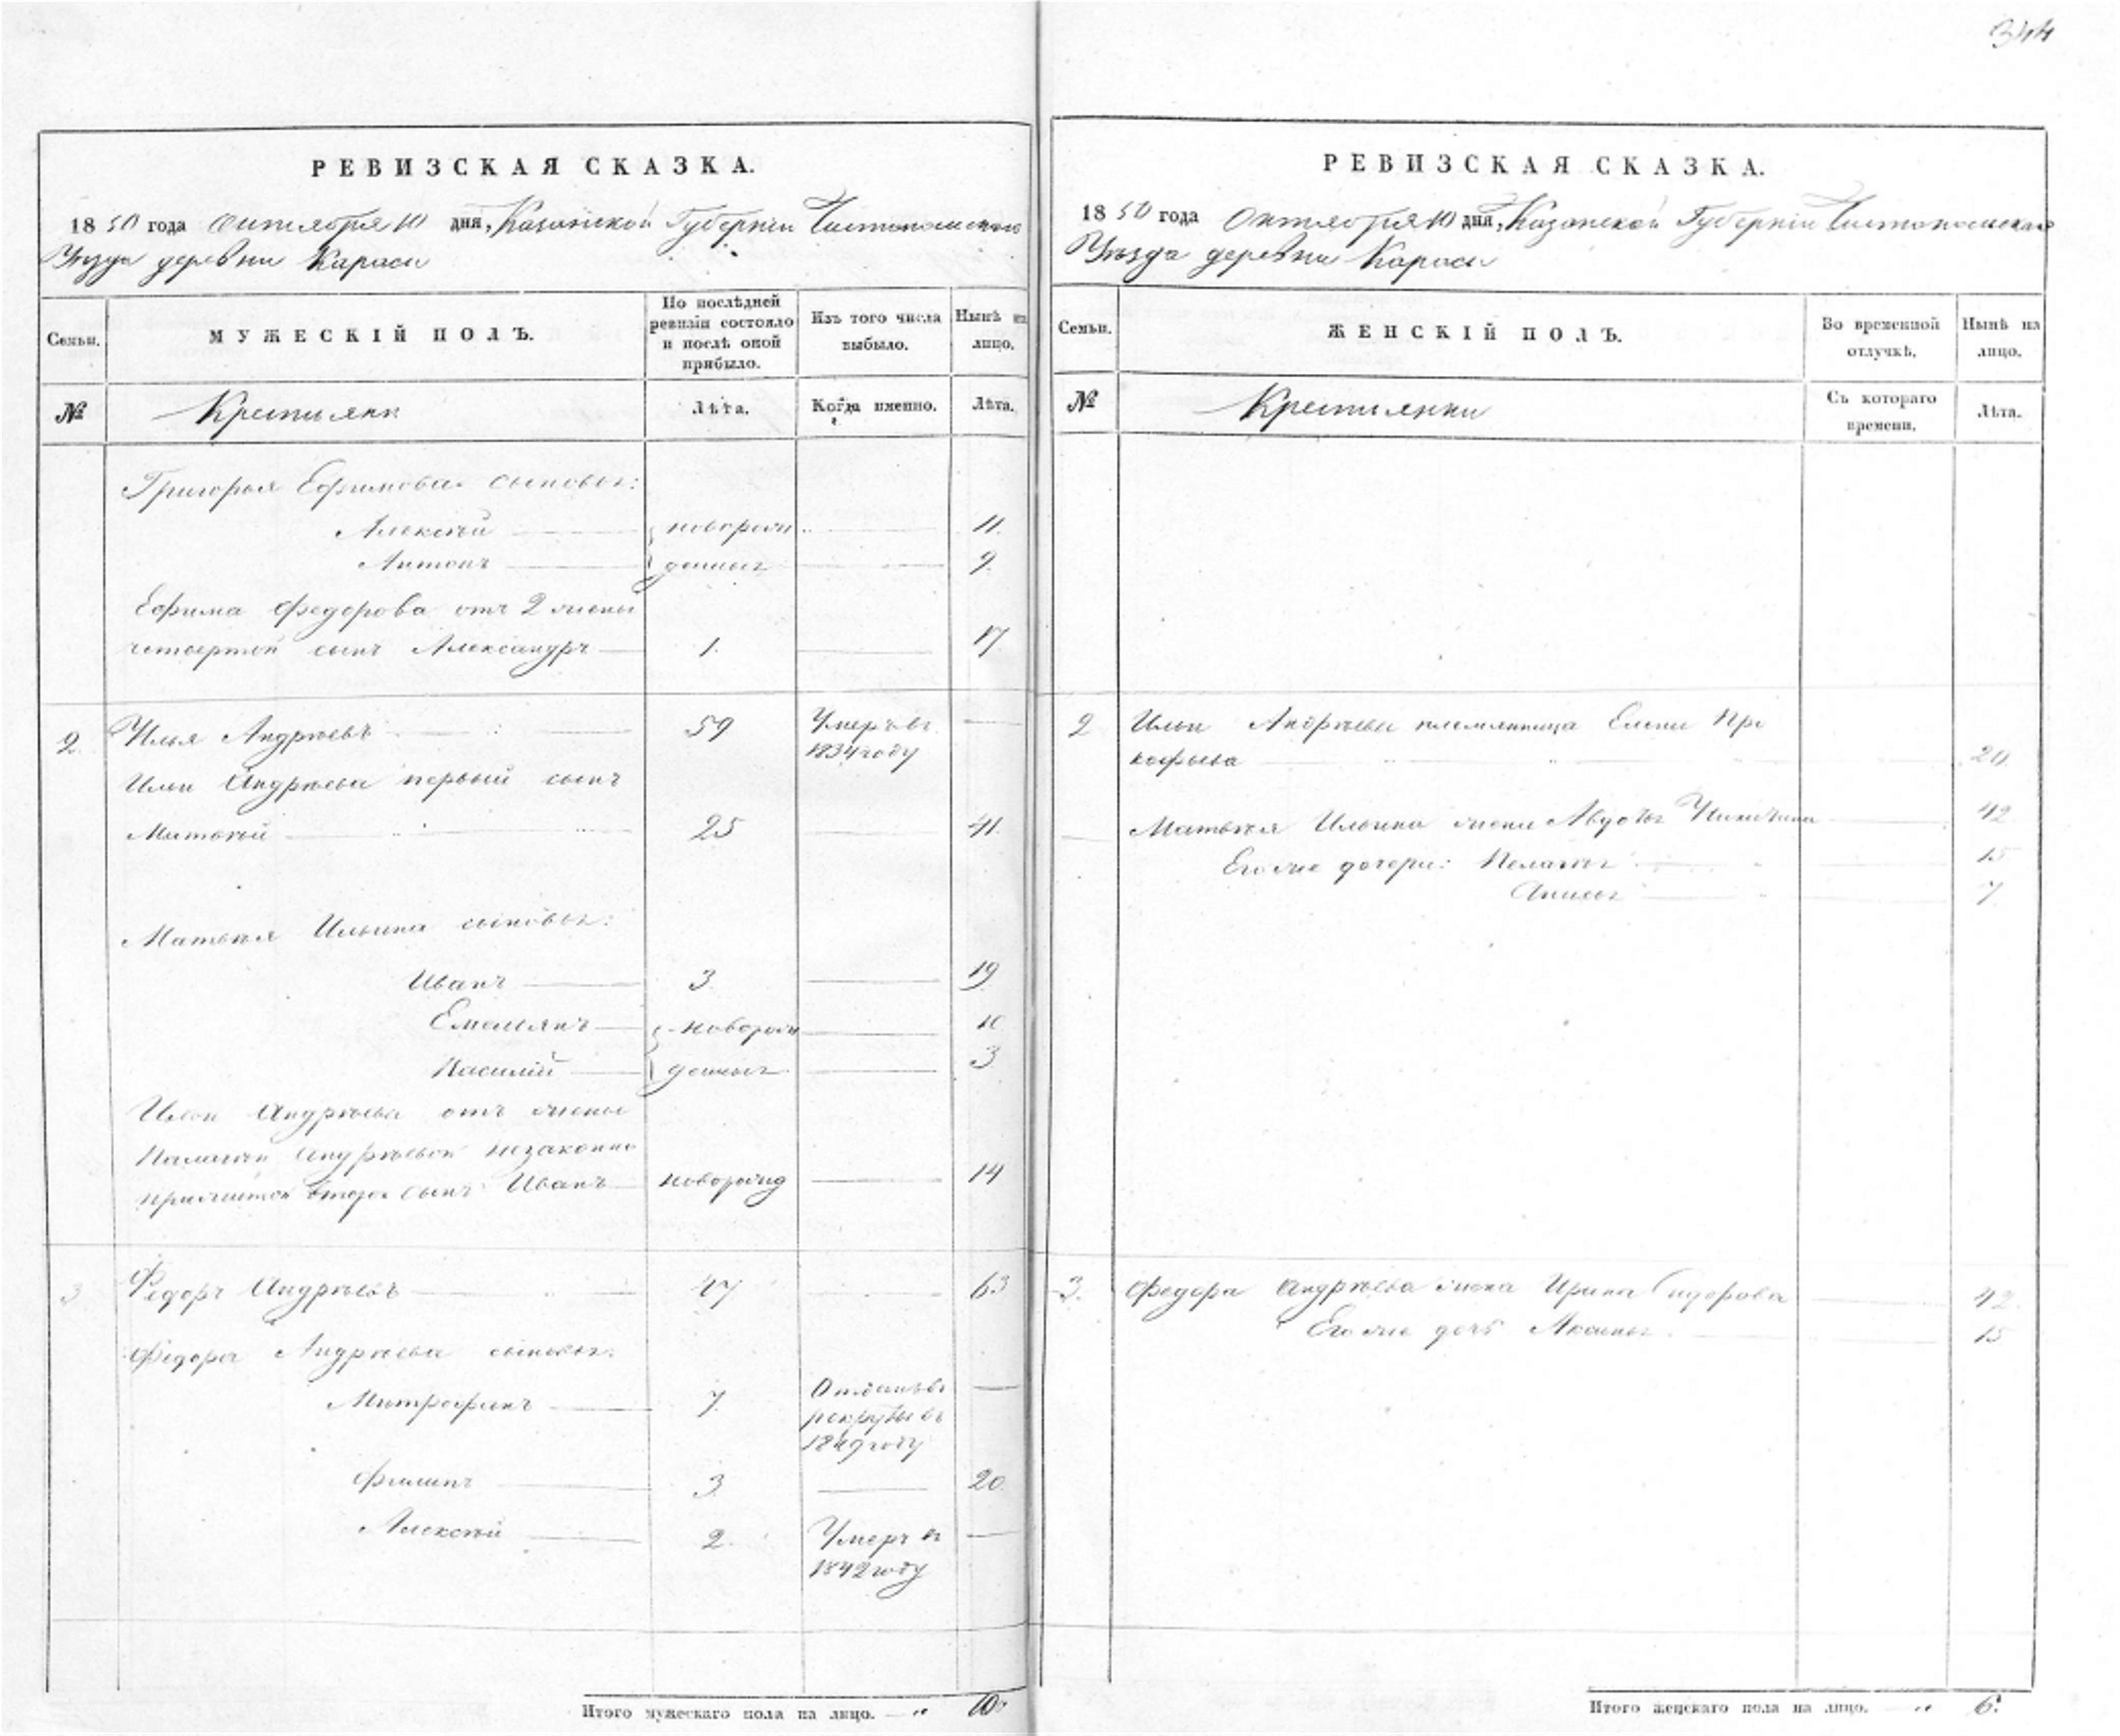 344
РЕВИЗСКАЯ СКАЗКА.
1850 года Октября 10 дня, Казанской Губерніи Чистопольскаго
Уѣзда деревни Караси
Семьи.
МУЖЕСКІЙ ПОЛЪ.
По послѣдней
ревизіи состояло
и послѣ оной
прибыло.
Изъ того числа
выбыло.
Нынѣ на
лицо.
№
Крестьяне
Лѣта.
Когда именно.
Лѣта.
Григорья Ефимова сыновья:
Алексѣй новорож 11.
Антонъ денныя 9.
Ефима Федорова отъ 2 жены
четвертой сынъ Александръ 1. 17
2. Илья Андрѣевъ 59 Умеръ въ
1834 году
Ильи Андрѣева первый сынъ
Матвѣй 25 41.
Матвѣя Ильина сыновья:
Иванъ 3 19
Емельянъ новорож 10
Василій денныя 3
Ильи Андрѣева отъ жены
Андрѣевой незаконно
прижитой второй сынъ Иванъ новорожд 14
3 Федоръ Андрѣевъ 47 63
Федора Андрѣева сыновья:
Митрофанъ 7. Отданъ въ
рекруты въ
1849 году
Филипъ 3 20.
Алексѣй 2. Умеръ въ
1842 году
Итого мужескаго пола на лицо. 10.
РЕВИЗСКАЯ СКАЗКА.
1850 года Октября 10 дня, Казанской Губерніи Чистопольскаго
Уѣзда деревни Караси
Семьи.
ЖЕНСКІЙ ПОЛЪ.
Во временной
отлучкѣ.
Нынѣ на
лицо.
№
Крестьянки
Съ котораго
времени.
Лѣта.
2 Ильи Андрѣева племянница Елена Про
кофьева 20
Матвѣя Ильина жена Авдотья Никитина 42
Его же дочери: Пелагея 15
7
3. Федора Андрѣева жена Ирина Сидорова 42.
Его же дочь 15
Итого женскаго пола на лицо. 6.